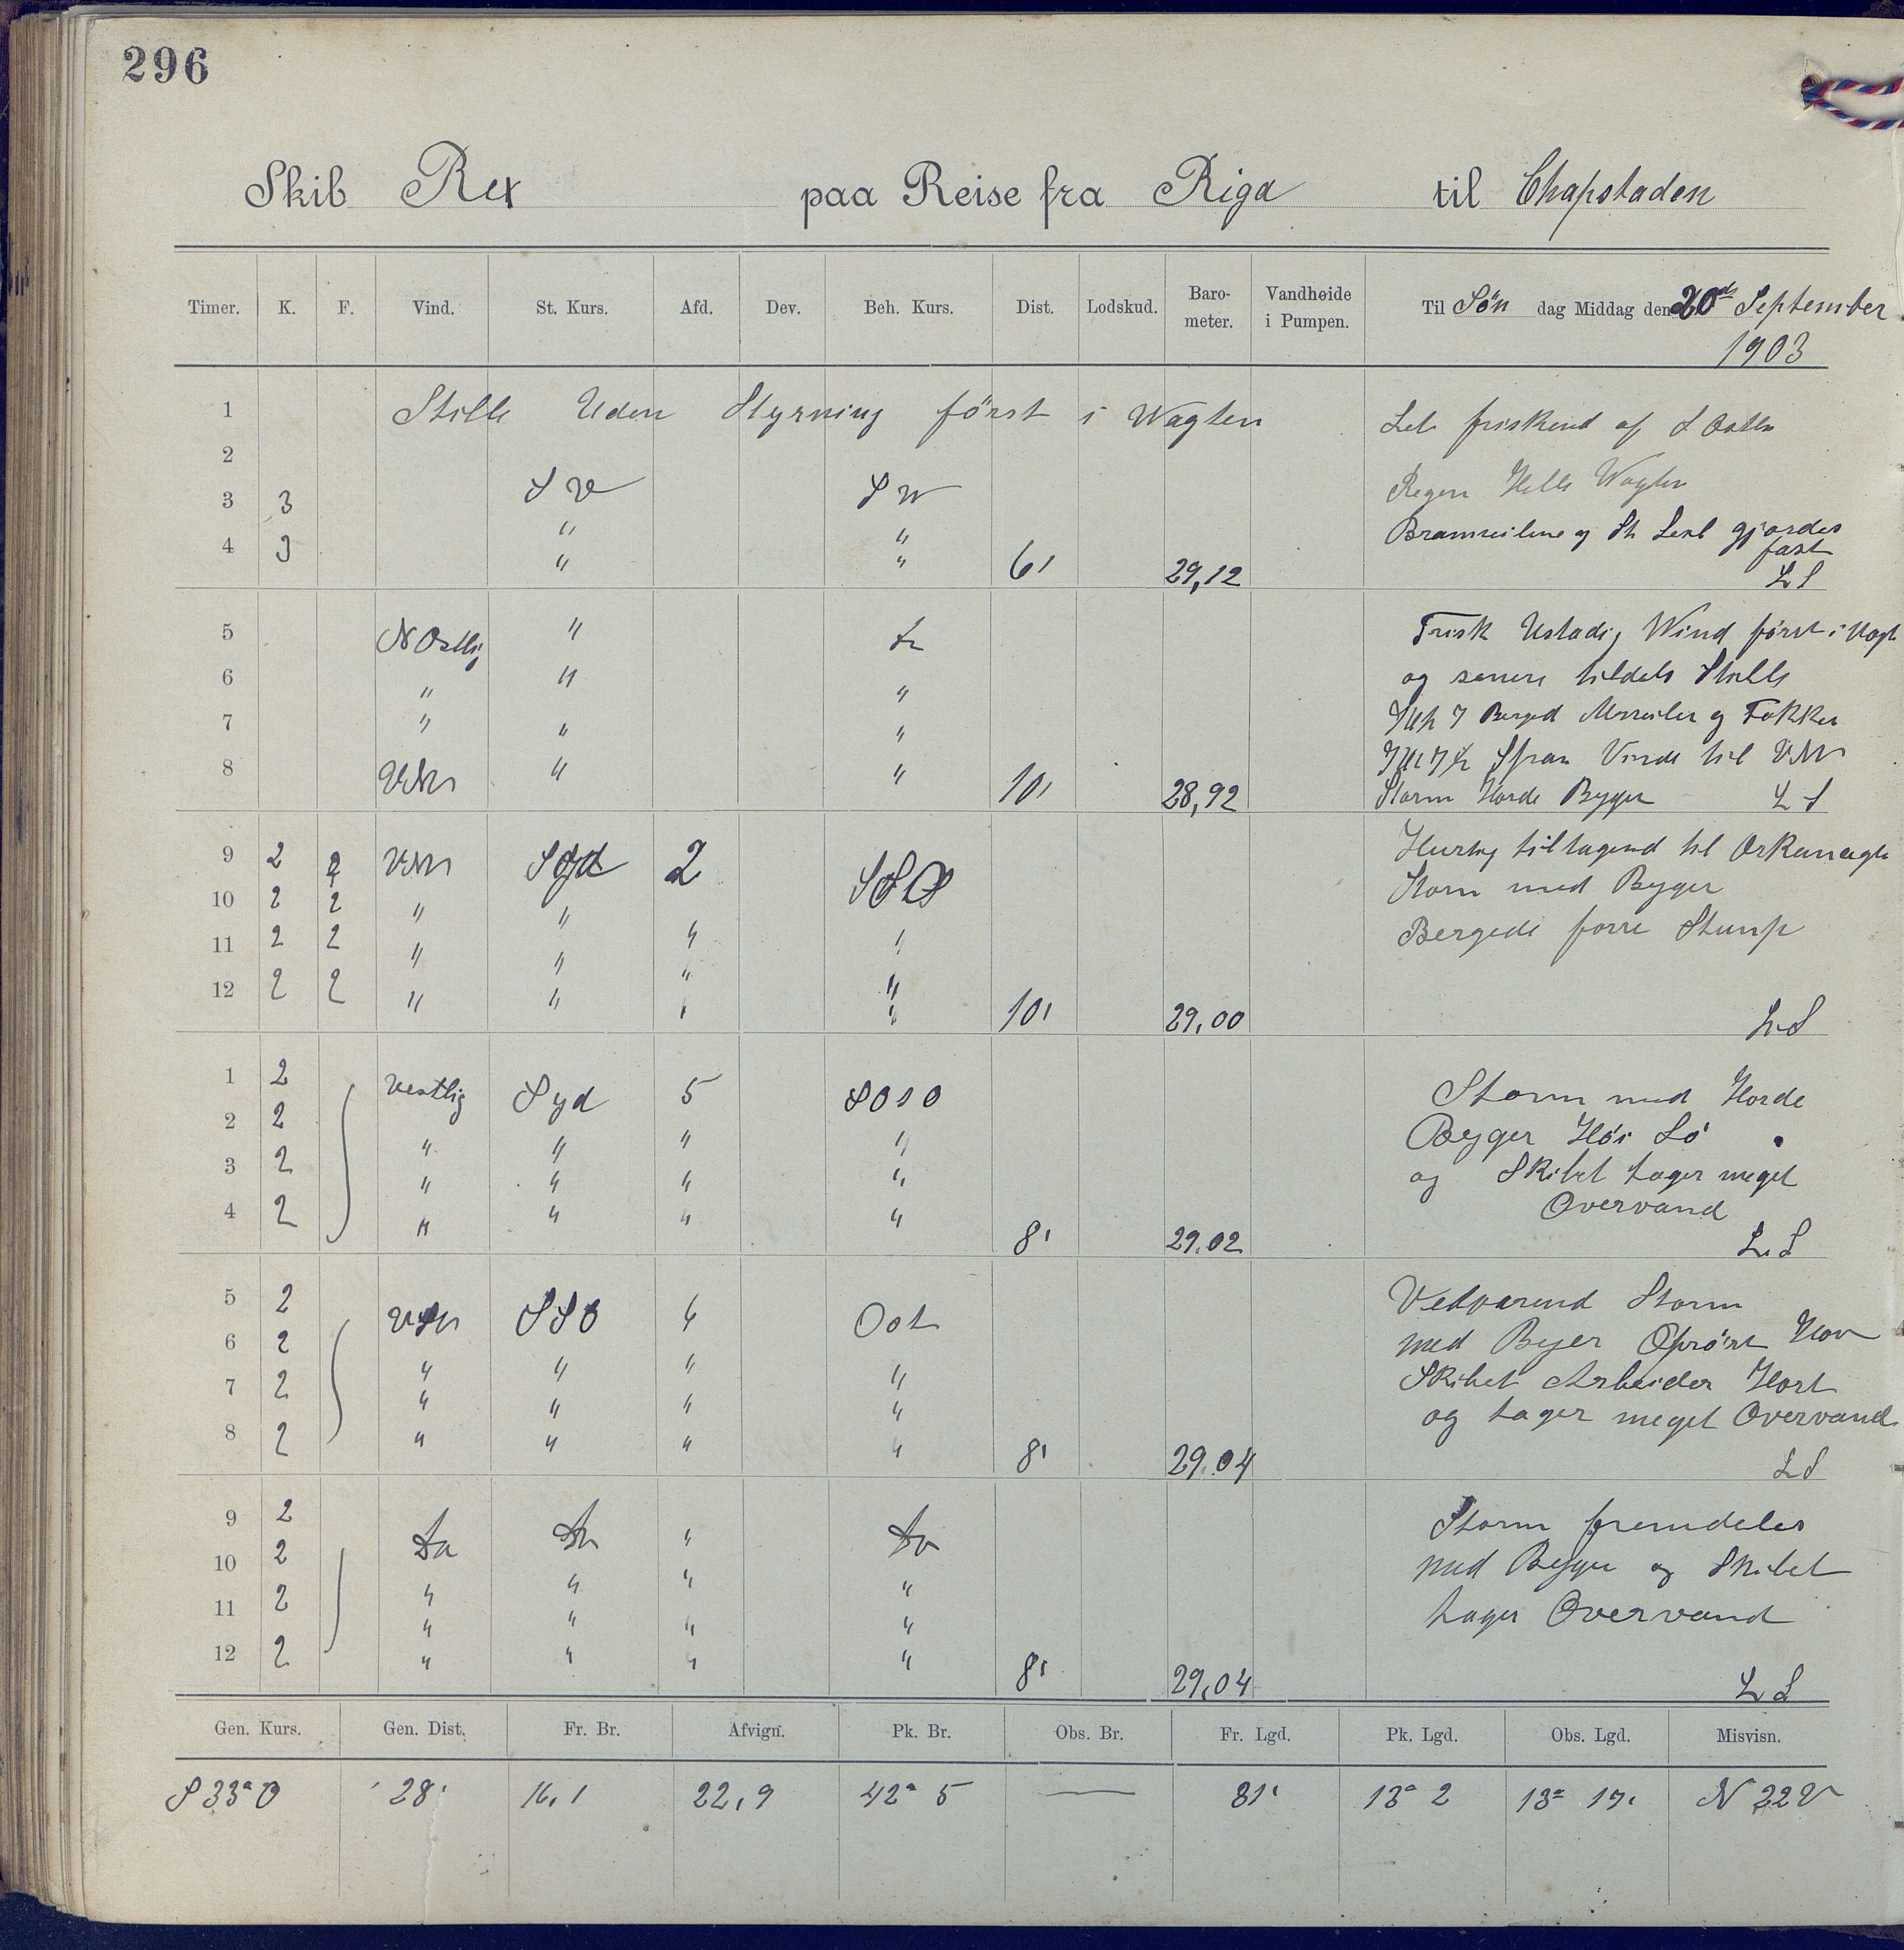 296
Skib Rex paa Reise fra Riga til Chapstaden
Timer. K. F. Vind. St. Kurs. Afd. Dev. Beh. Kurs. Dist. Lodskud. Baro-meter. Vandhøide i Pumpen. Til Søn dag Middag den 20de September
1903
1 Stille Uden Styrning først i Wagten
Let friskend af S Osten
2
Regen Helle Wagten
3 3 S V S W
Bramseilene og St Seil gjordes
4 3 " "
fast
" " 6' 29,12
L S
5 N Ostlig " Do
Frisk Ustadig Wind først i Vagt
6 " " "
og senere tildels Stille
7 " " "
Kl 7 Berged Merseiler og Fokken
8 VNV " " 10' 28,92
Vinde til VNV
Storm Horde Bygger L S
9 2 2 VNV Syd 2 SSO
Hurtig tiltagend til Orkanagti
10 2 2 " "
Storm med Byger
11 2 2 " " " "
Bergede forre Stump
12 2 2 " " " "
" " 10' 29,00
L.S
1 2 Vestlig Syd 5 SOSO
Storm med Horde
2 2 " " " "
Bygger Høi Sø
3 2 " " " "
og Skibet tager meget
4 2 " " " "
Overvand
8' 29.02
L. S
5 2 SSO 4 Ost
Vedvarend Storm
6 2 " " " "
med Byer Oprørt Hav
7 2 " " " "
Skibet Arbeider Hart
8 2 " " " "
og tager meget Overvand
8' 29.04
L S
9 2 Do Do " Do
Storm fremdeles
10 2 " " " "
med Bygger og Skibet
11 2 " " " "
tager Overvand
12 2 " " " "
8' 29,04
L S
Gen. Kurs. Gen. Dist. Fr. Br. Afvign. Pk. Br. Obs. Br. Fr. Lgd. Pk. Lgd. Obs. Lgd. Misvisn.
S 33° O 28' 16,1 22,9 42° 5 — 31' 13° 2 13° 17' N 22 V